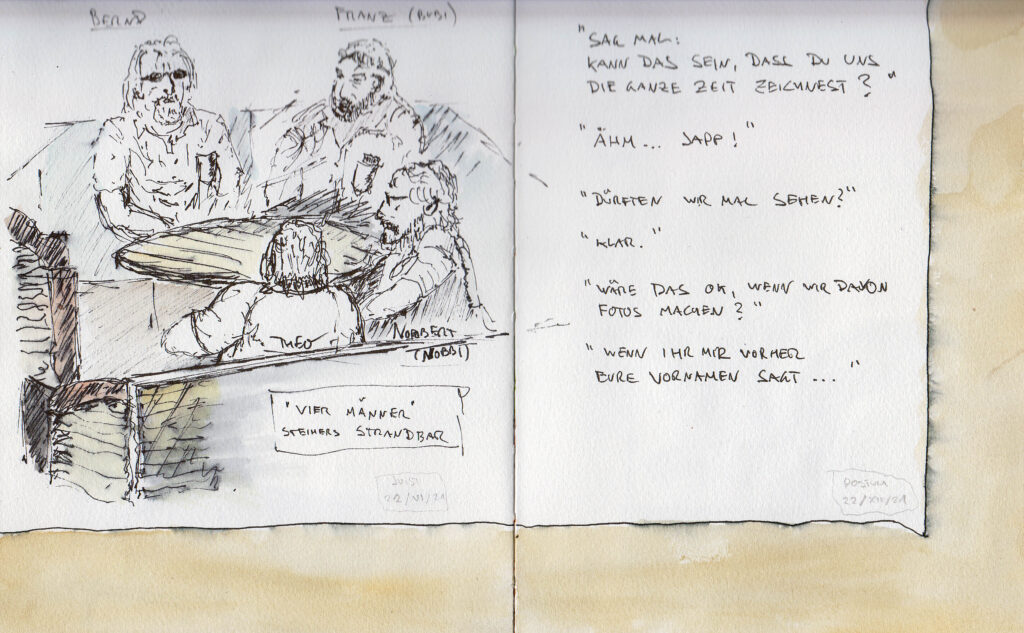 BERND
FRANZ (BUBI)
THEO
NORBERT
(NOBBI)
"VIER MÄNNER"
STEINERS STRANDBAR
JUIST
22/VI/21
"SAG MAL:
KANN DAS SEIN, DASS DU UNS
DIE GANZE ZEIT ZEICHNEST?"
"ÄHM... JAPP!"
"DÜRFTEN WIR MAL SEHEN?"
"KLAR."
"WÄRE DAS OK, WENN WIR DAVON
FOTOS MACHEN?"
"WENN IHR MIR VORHER
EURE VORNAMEN SAGT..."
22/XII/21